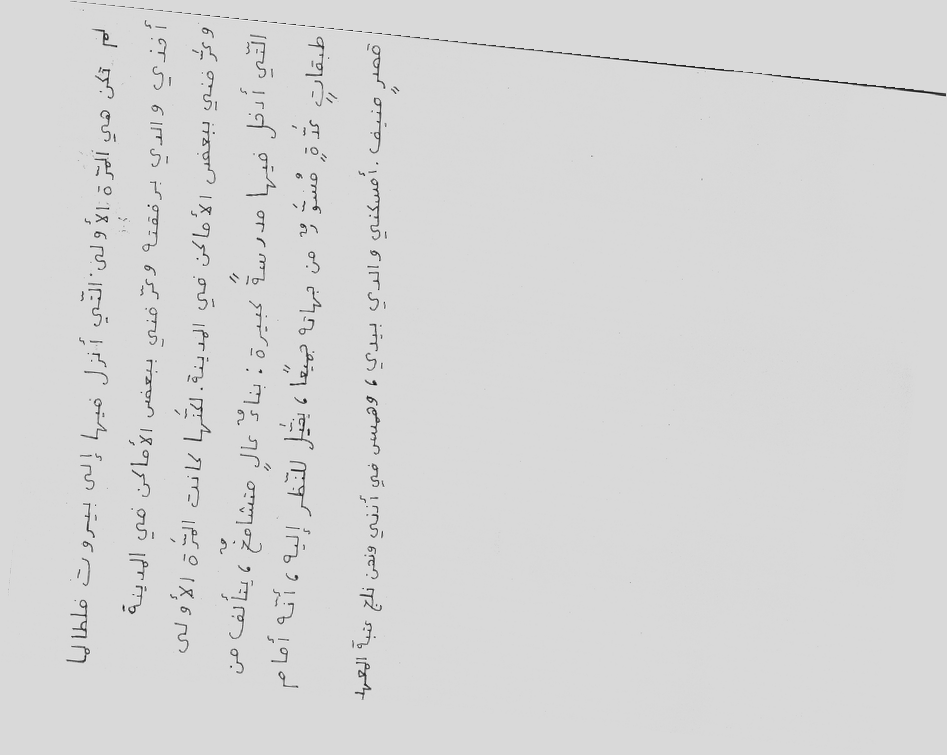 لم تكن هي المرّة الأولى التّي أنزل فيها إلى بيروت فلطالما
أخذني والدي برفقته وعرّفني ببعض الأماكن في المدينة
وعرّفني ببعض الأماكن في المدينة. لكنّها كانت المرّة الأولى
التّي أدخل فيها مدرسةً كبيرة: بناءٌ عالٍ متشامخٌ، يتألّف من
طبقاتٍ عدّةٍ مُسوّرٌ من جهاته جميعًا، يخيّل للنّظر إليه، أنّه أمام
قصرٍ منيف. أمسكني والدي بيدي، وهمس في أذني ونحن نلج عتبة المعهد